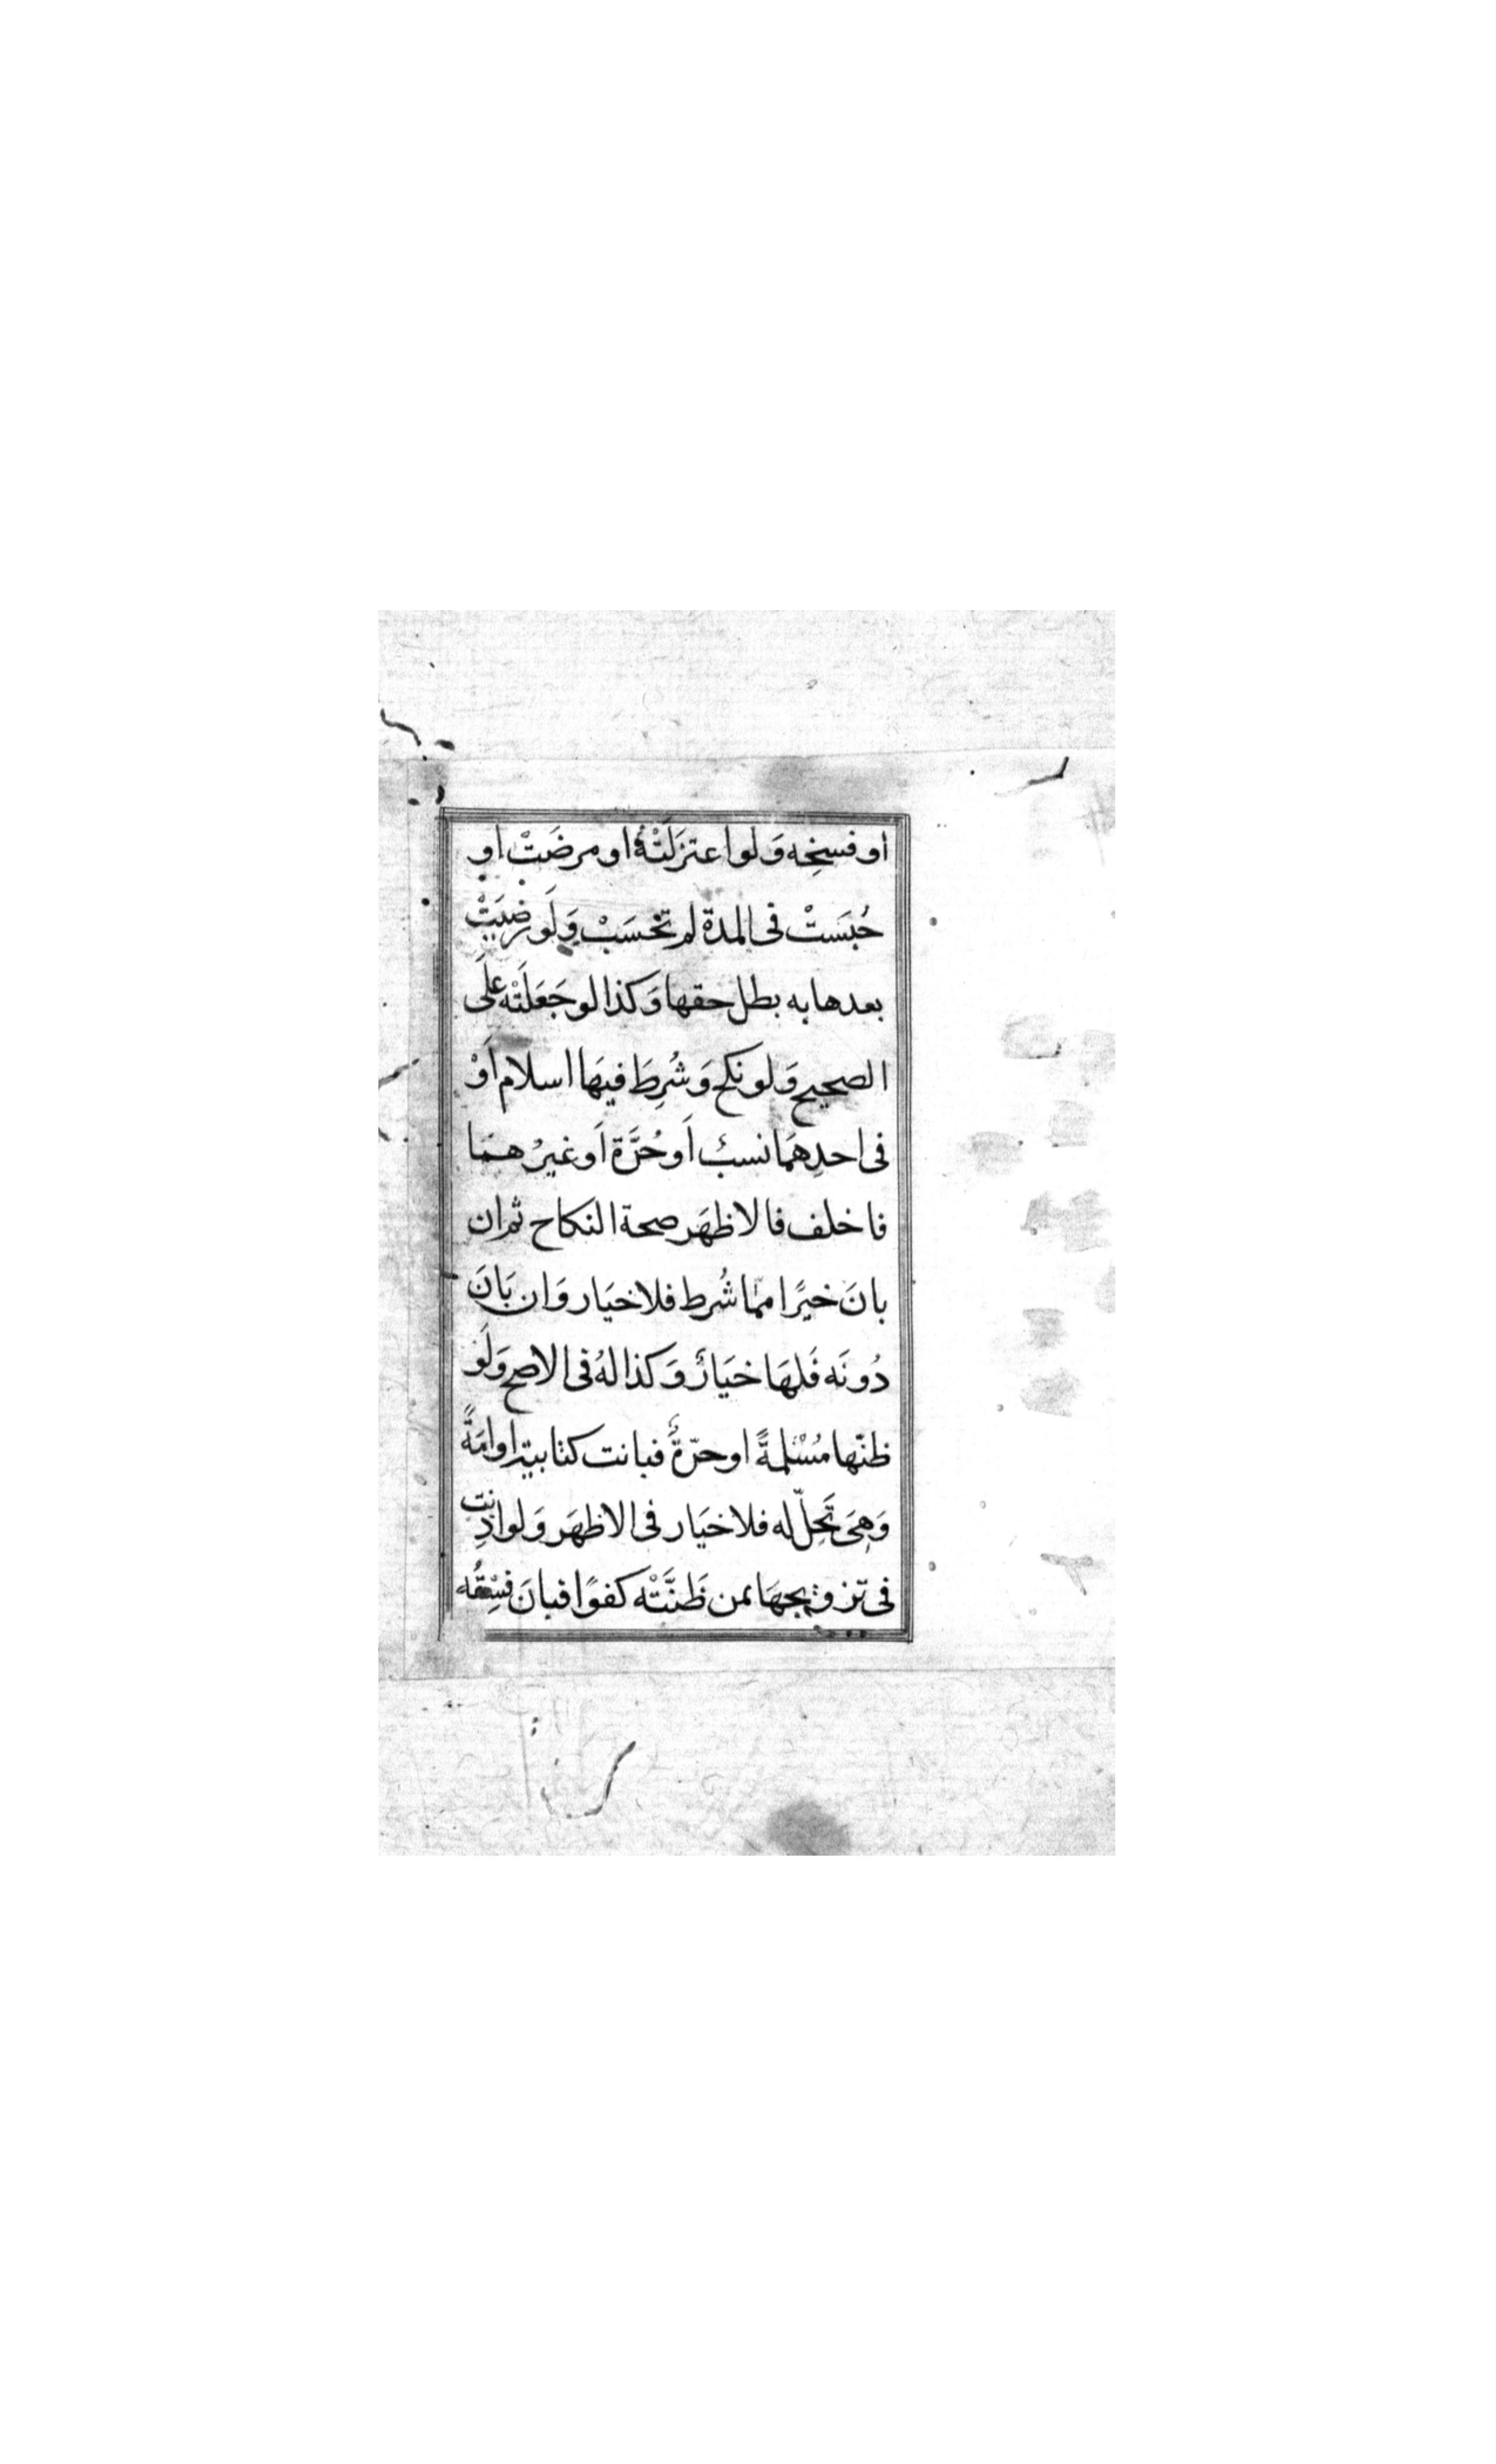 او فسخِه وَلَو اعتزَلَتْهُ او مرضَتْ او
حُبَسَتْ فى المدة لم تحسَبْ وَلَو رضيَتْ
بعدها به بطل حقها وَكذا لو جَعَلَتْه علَى
الصحيح وَلو نكح وَشُرِطَ فيهَا اسلام اَوْ
فى احدِهمَا نسبٌ اَو حُرَّة اَو غيرُ همَا
فاخلف فالاظهَر صحة النكاح ثم ان
بانَ خيرًا ممّا شُرط فلا خيَار وَان بَانَ
دُونَه فَلهَا خيَارٌ وَكذا لهُ فى الاصح وَلَو
ظنّها مُسْلمةً او حرّةً فبانت كتابية او امَةً
وَهِىَ تَحِلّ له فلا خيَار فى الاظهَر وَلو اذِنت
فى تزويجهَا بمن ظَنَّتْه كفوًا فبانَ فسِقُه